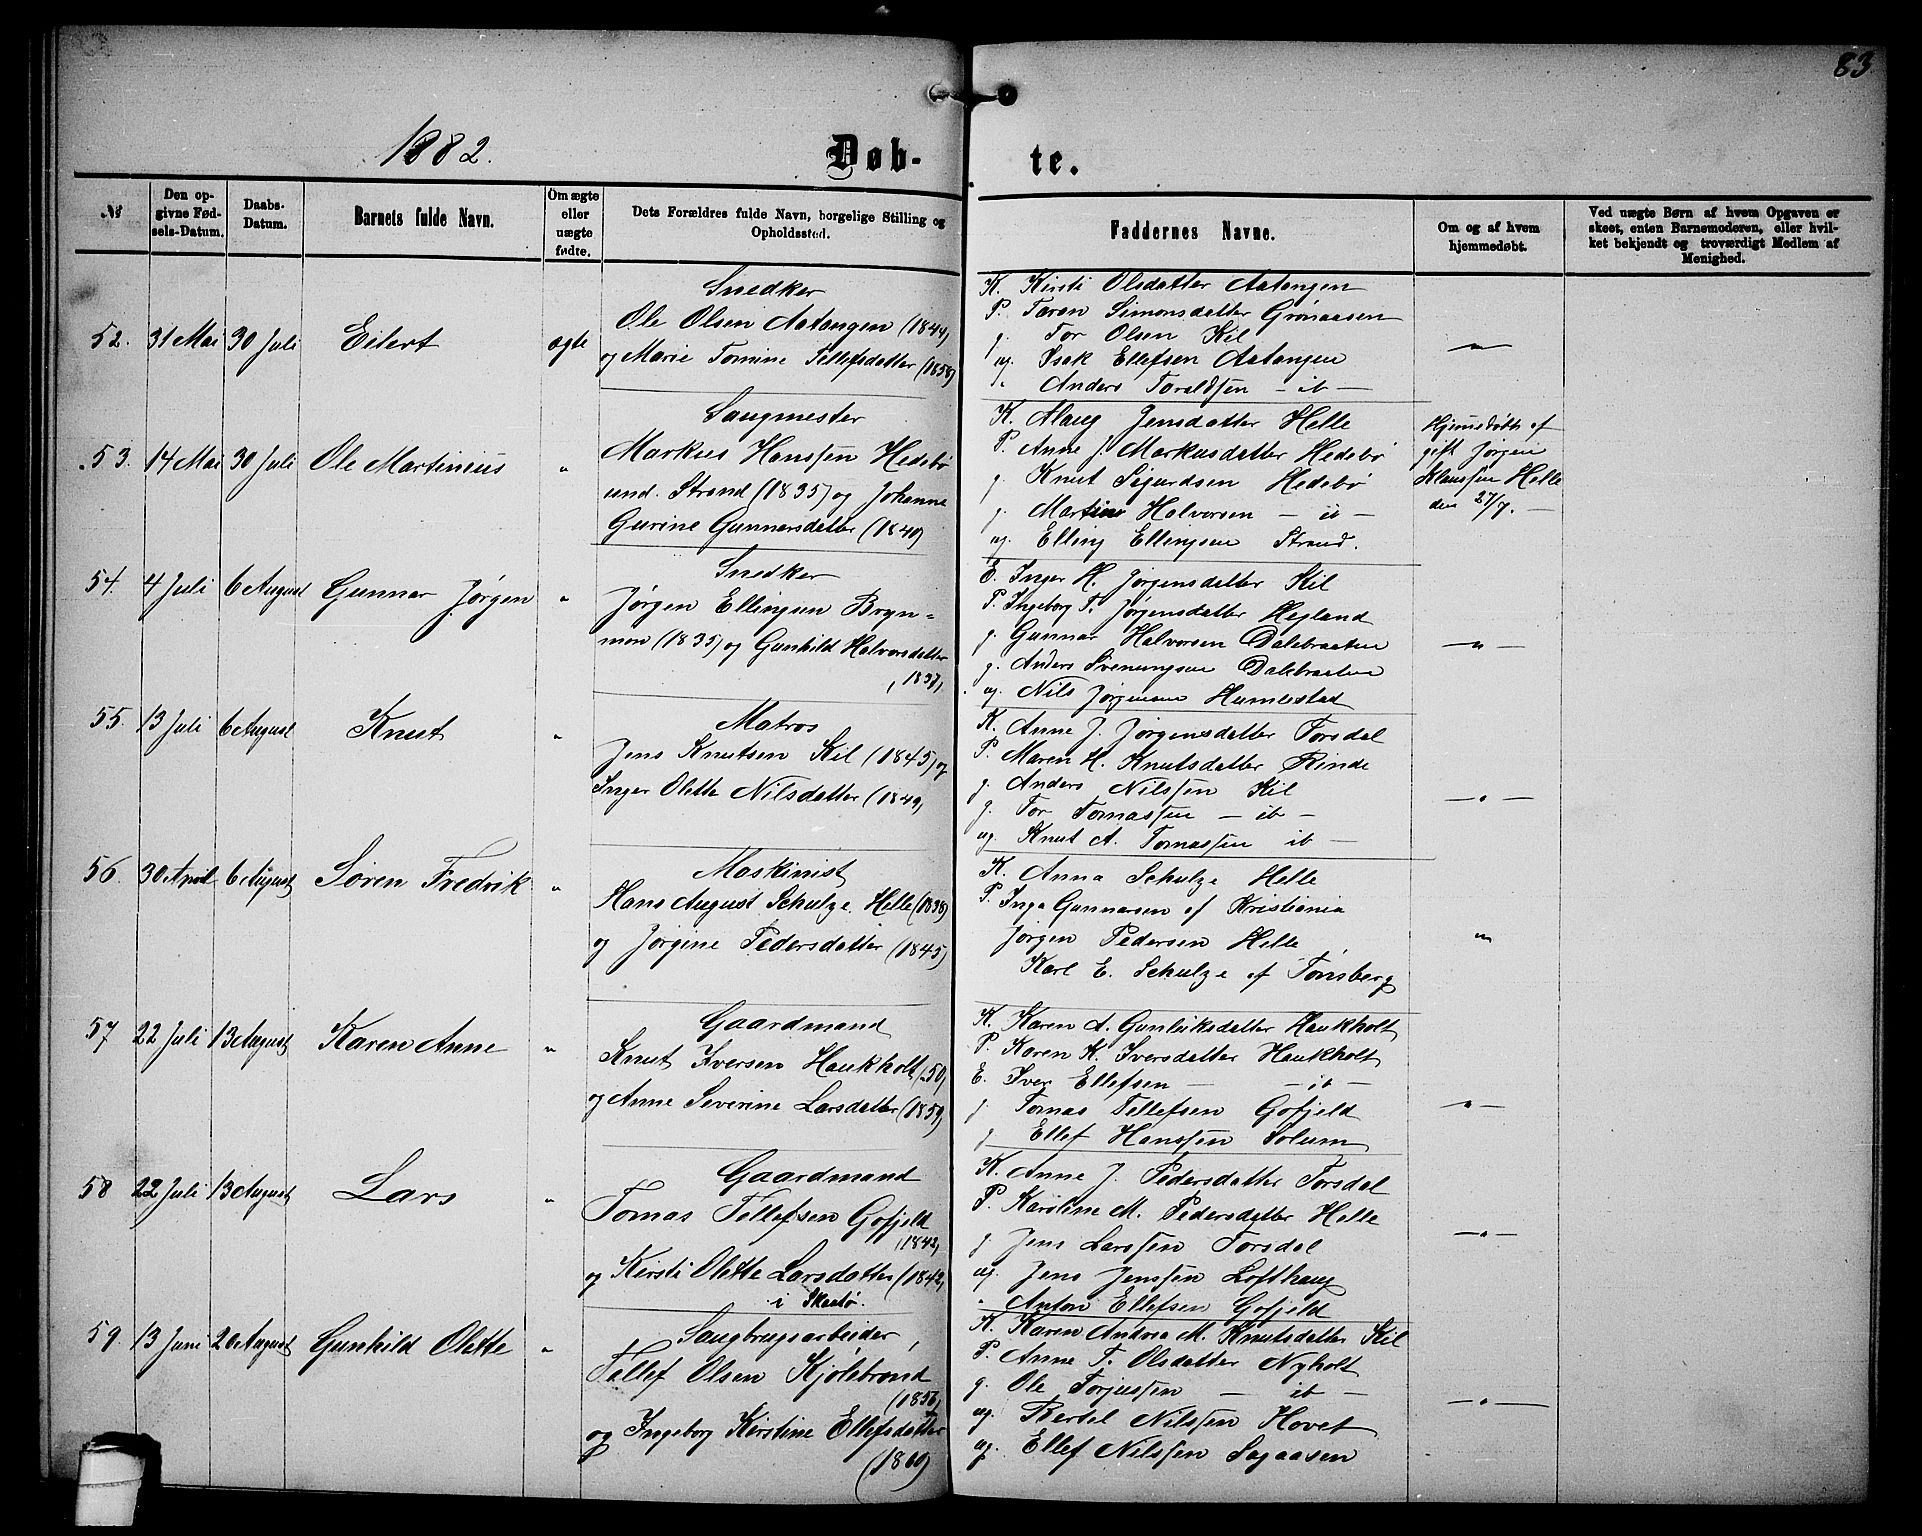 83
1882.
Døb-te.
№
Den opgivne Fødsels-Datum.
Daabs-Datum.
Barnets fulde Navn.
Om ægte eller uægte fødte.
Dets Forældres fulde Navn, borgelige Stilling og Opholdssted.
Faddernes Navne.
Om og af hvem hjemmedøbt.
Ved uægte Børn af hvem Opgaven er skeet, enten Barnemoderen, eller hvilket bekjendt og troværdigt Medlem af Menighed.
52. 31 Mai 30 Juli Eilert ægte
Snedker
Ole Olsen Aatangen (1844)
og Marie Tomine Tellefsdatter (1858)
K. Kirsti Olsdatter Aatangen
P. Taran Simonsdatter Grønaasen
g. Tor Olsen Kil
ug. Isak Ellefsen Aatangen
" Anders Taraldsen – ib –
53. 14 Mai 30 Juli Ole Martinius "
Saugmester
Markus Hanssen Hedebø
und. Strand (1835) og Johanne
Gurine Gunnarsdatter (1840)
K. Alaug Jensdatter Helle
P. Anne J. Markusdatter Hedebø
g. Knut Sigurdsen Hedebø
g. Martin Halvorsen – ib –
ug. Elling Ellingsen Strand.
Hjemedøbt af
gift Jørgen
Klaussen Helle
den 27/7. –
54. 4 Juli 6 August Gunnar Jørgen "
Snedker
Jørgen Ellingsen Bryn=
mon (1835) og Gunhild Halvorsdatter
(1837)
E. Inger H. Jørgensdatter Kil
P. Ingeborg T. Jørgensdatter Hegland
g. Gunnar Halvorsen Dalebraaten
g. Anders Sveningsen Dalebraaten
ug. Nils Jørgensen Humlestad
– " –
55. 13 Juli 6 August Knut "
Matros
Jens Knutsen Kil (1845) og
Inger Olette Nilsdatter (1849)
K. Anne J. Jørgensdatter Torsdal
P. Maren H. Knutsdatter Rinde
g. Anders Nilssen Kil
g. Tor Tomassen – ib –
ug. Knut A. Tomassen ib –
– " –
56. 30 April 6 August Søren Fredvik "
Maskinist
Hans August Schulze Helle (1838)
og Jørgine Pedersdatter (1845)
K. Anna Schulze Helle
P. Inga Gunnarsen af Kristiania
Jørgen Pedersen Helle
Karl E. Schulze af Tønsberg
"
57 22 Juli 13 August Karen Anne "
Gaardmand
Knut Iversen Haukholt (50)
og Anne Severine Larsdatter (1859)
K. Karen A. Gunleiksdatter Haukholt
P. Karen K. Iversdatter Haukholt
E. Iver Ellefsen – – ib –
g. Tomas Tellefsen Gofjeld
g. Ellef Hanssen Solum
" –
58 22 Juli 13 August Lars "
Gaardmand
Tomas Tellefsen Gofjeld
(1843)
og Kirsti Olette Larsdatter (1842)
i Skaatø.
K. Anne J. Pedersdatter Torsdal
P. Karoline M. Pedersdatter Helle
g. Jens Larssen Torsdal
ug. Jens Jenssen Lofthaug
" Anton Ellefsen Gofjeld
– " –
59. 13 Juni 20 August Gunhild Olette "
Saugbrugsarbeider
Tellef Olsen Kjølebrønd
(1856)
og Ingeborg Kirstine Ellefsdatter
(1860)
K. Karen Andrea M. Knutsdatter Kil
P. Anne T. Olsdatter Nyholt
g. Ole Torjussen – ib –
ug. Bertel Nilssen Hovet
ug. Ellef Nilssen Sagaasen
– " –